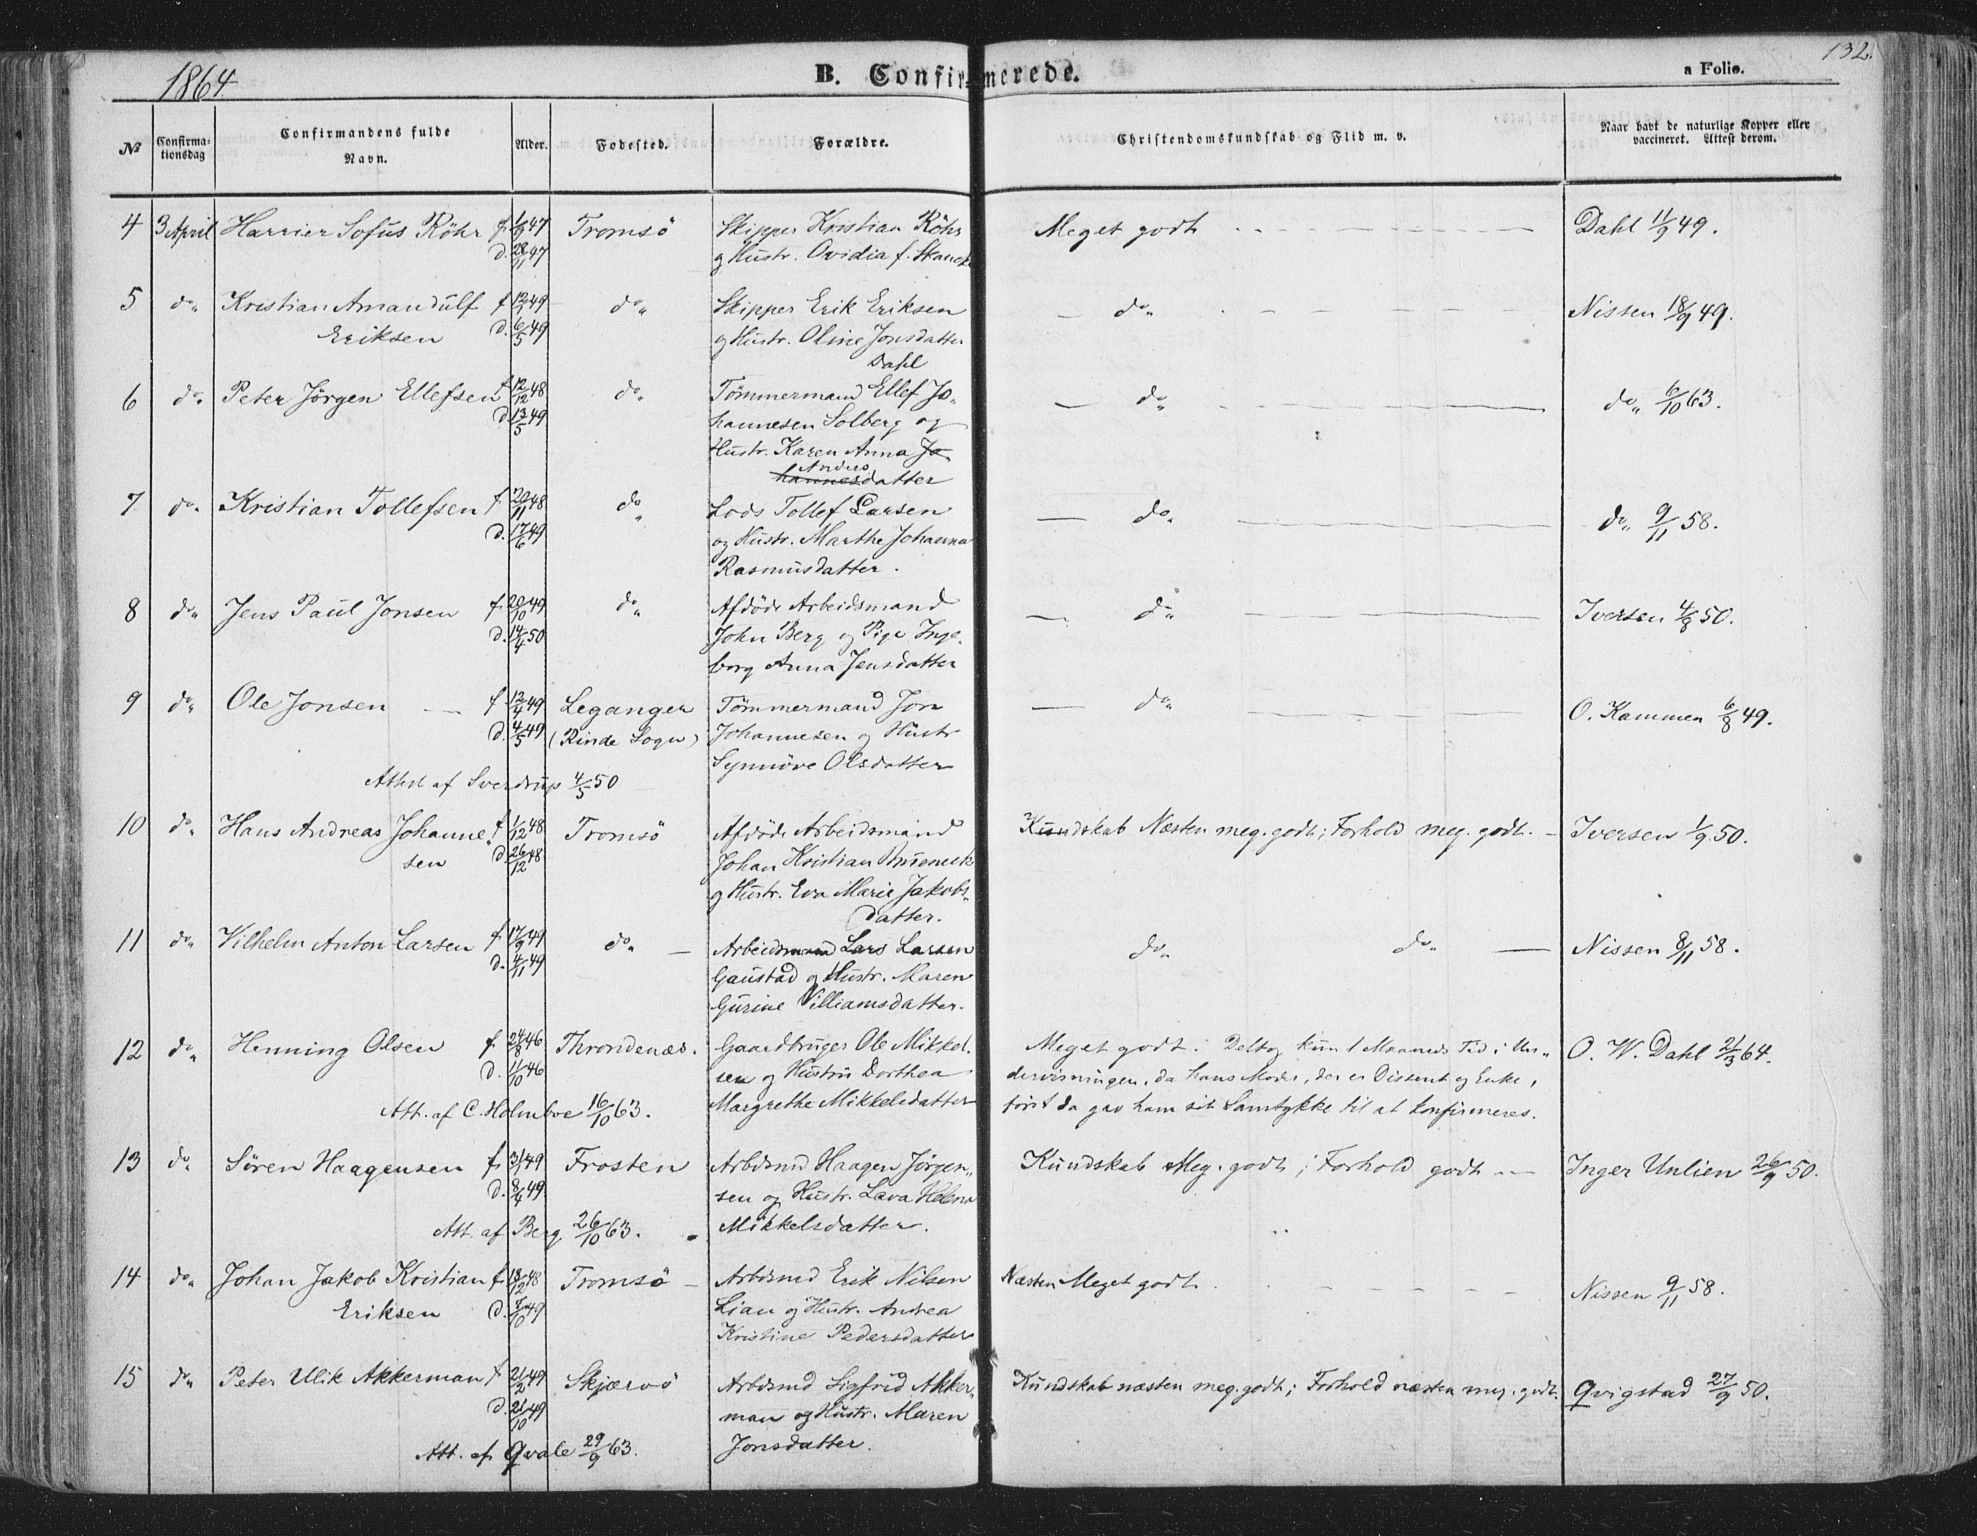 1864.
B. Confirmerede.
a Folio.
132.
№
Confirma-
tionsdag
Confirmandens fulde
Navn.
Alder.
Fødested.
Forældre.
Christendomskundskab og Flid m. v.
Naar havt de naturlige Kopper eller
vaccineret. Attest derom.
4 3 April Harrier Sofus Röhr f. 1/9 47 Tromsö Skipper Kristian Röhr Meget godt Dahl 11/9 49.
d. 28/11 47 og Hustr. Ovidia f. Skancke
5 do„ Kristian Amandulf f 12/2 49 do„ Skipper Erik Eriksen do„ Nissen 18/9 49.
Eriksen d. 6/5 49 og Hustr. Oline Jonsdatter
Dahl
6 do„ Peter Jörgen Ellefsen f 12/12 48 do„ Tömmermand Ellef Jo- do„ do„ 6/10 63.
d. 13/5 49 hannesen Solberg og
Hustr. Karen Anna Jo-
Anders
hannesdatter
7 do„ Kristian Tollefsen f 20/11 48 do„ Lods Tollef Larsen do„ do„ 9/11 58.
d. 17/6 49 og Hustr. Marthe Johanna
Rasmusdatter.
8 do„ Jens Paul Jonsen f. 20/10 49 do„ Afdöde Arbeidsmand do„ Iversen 4/8 50.
d. 14/4 50 John Berg og Pige Inge-
borg Anna Jensdatter
9 do„ Ole Jonsen f. 12/4 49 Leganger Tömmermand Jon do„ O. Kammen 6/8 49.
d. 4/5 49 (Rinde Sogn) Johannesen og Hustr
Synnöve Olsdatter
Attest af Sverdrup 4/5 50
10 do„ Hans Andreas Johanne- f 1/12 48 Tromsö Afdöde Arbeidsmand Kundskab Næsten meg. godt; Forhold meg. godt. Iversen 1/9 50.
sen d. 26/12 48 Johan Kristian
og Hustr. Eva Marie Jakobs-
datter.
11 do„ Vilhelm Anton Larsen f 17/9 49 do„ Arbeidsmand Lars Larsen do„ do„ Nissen 8/11 58.
d. 4/11 49 Gaustad og Hustr. Maren
Gurine Villiamsdatter.
12 do„ Henning Olsen f. 24/8 46 Throndenæs. Gaardbruger Ole Mikkel- Meget godt. Deltog kun 1 Maaneds Tid i Un- O. W. Dahl 21/3 64.
d. 11/10 46 sen og Hustru Dorthea dervisningen, da hans Moder, der er Dissent og Enke,
Att. af C. Holmboe 16/10 63. Margrethe Mikkelsdatter först da gav ham sit Samtykke til at konfirmeres.
13 do„ Sören Haagensen f. 3/1 49 Frosten Arbdsmd Haagen Jörgen- Kundskab Meg. godt; Forhold godt Inger Unlien 26/9 50.
d. 8/4 49. sen og Hustr. Lava Helena
Att. af Berg 26/10 63. Mikkelsdatter.
14 do„ Johan Jakob Kristian f 18/12 48 Tromsö Arbdsmd Erik Nilsen Næsten Meget godt Nissen 9/11 58.
Eriksen d. 7/10 49 Lian og Hustr. Andrea
Kristine Pedersdatter
15 do„ Peter Ulik Akkerman f 21/2 49 Skjærvö Arbdsmd Sigfrid Akker- Kundskab næsten meg. godt; Forhold næsten meg. godt. Qvigstad 27/9 50.
d. 21/10 49 man og Hustr. Maren
Att. af Qvale 29/9 63. Jonsdatter.